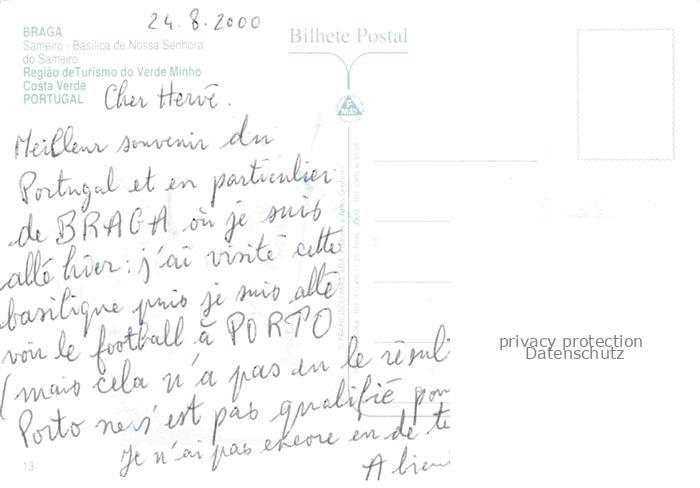 24.8.2000
BRAGA
Sameiro - Basílica de Nossa Senhora
do Sameiro
Região deTurismo do Verde Minho
Costa Verde
PORTUGAL
Bilhete Postal
Cher Hervé.
Meilleur souvenir du
Portugal et en particulier
de BRAGA où je suis
allé hier: j'ai visité cette
basilique puis je suis allé
voir le football à PORTO
(mais cela n'a pas eu le résul
Porto ne s'est pas qualifié pou
Je n'ai pas encore eu de te
A bien
13
privacy protection
Datenschutz